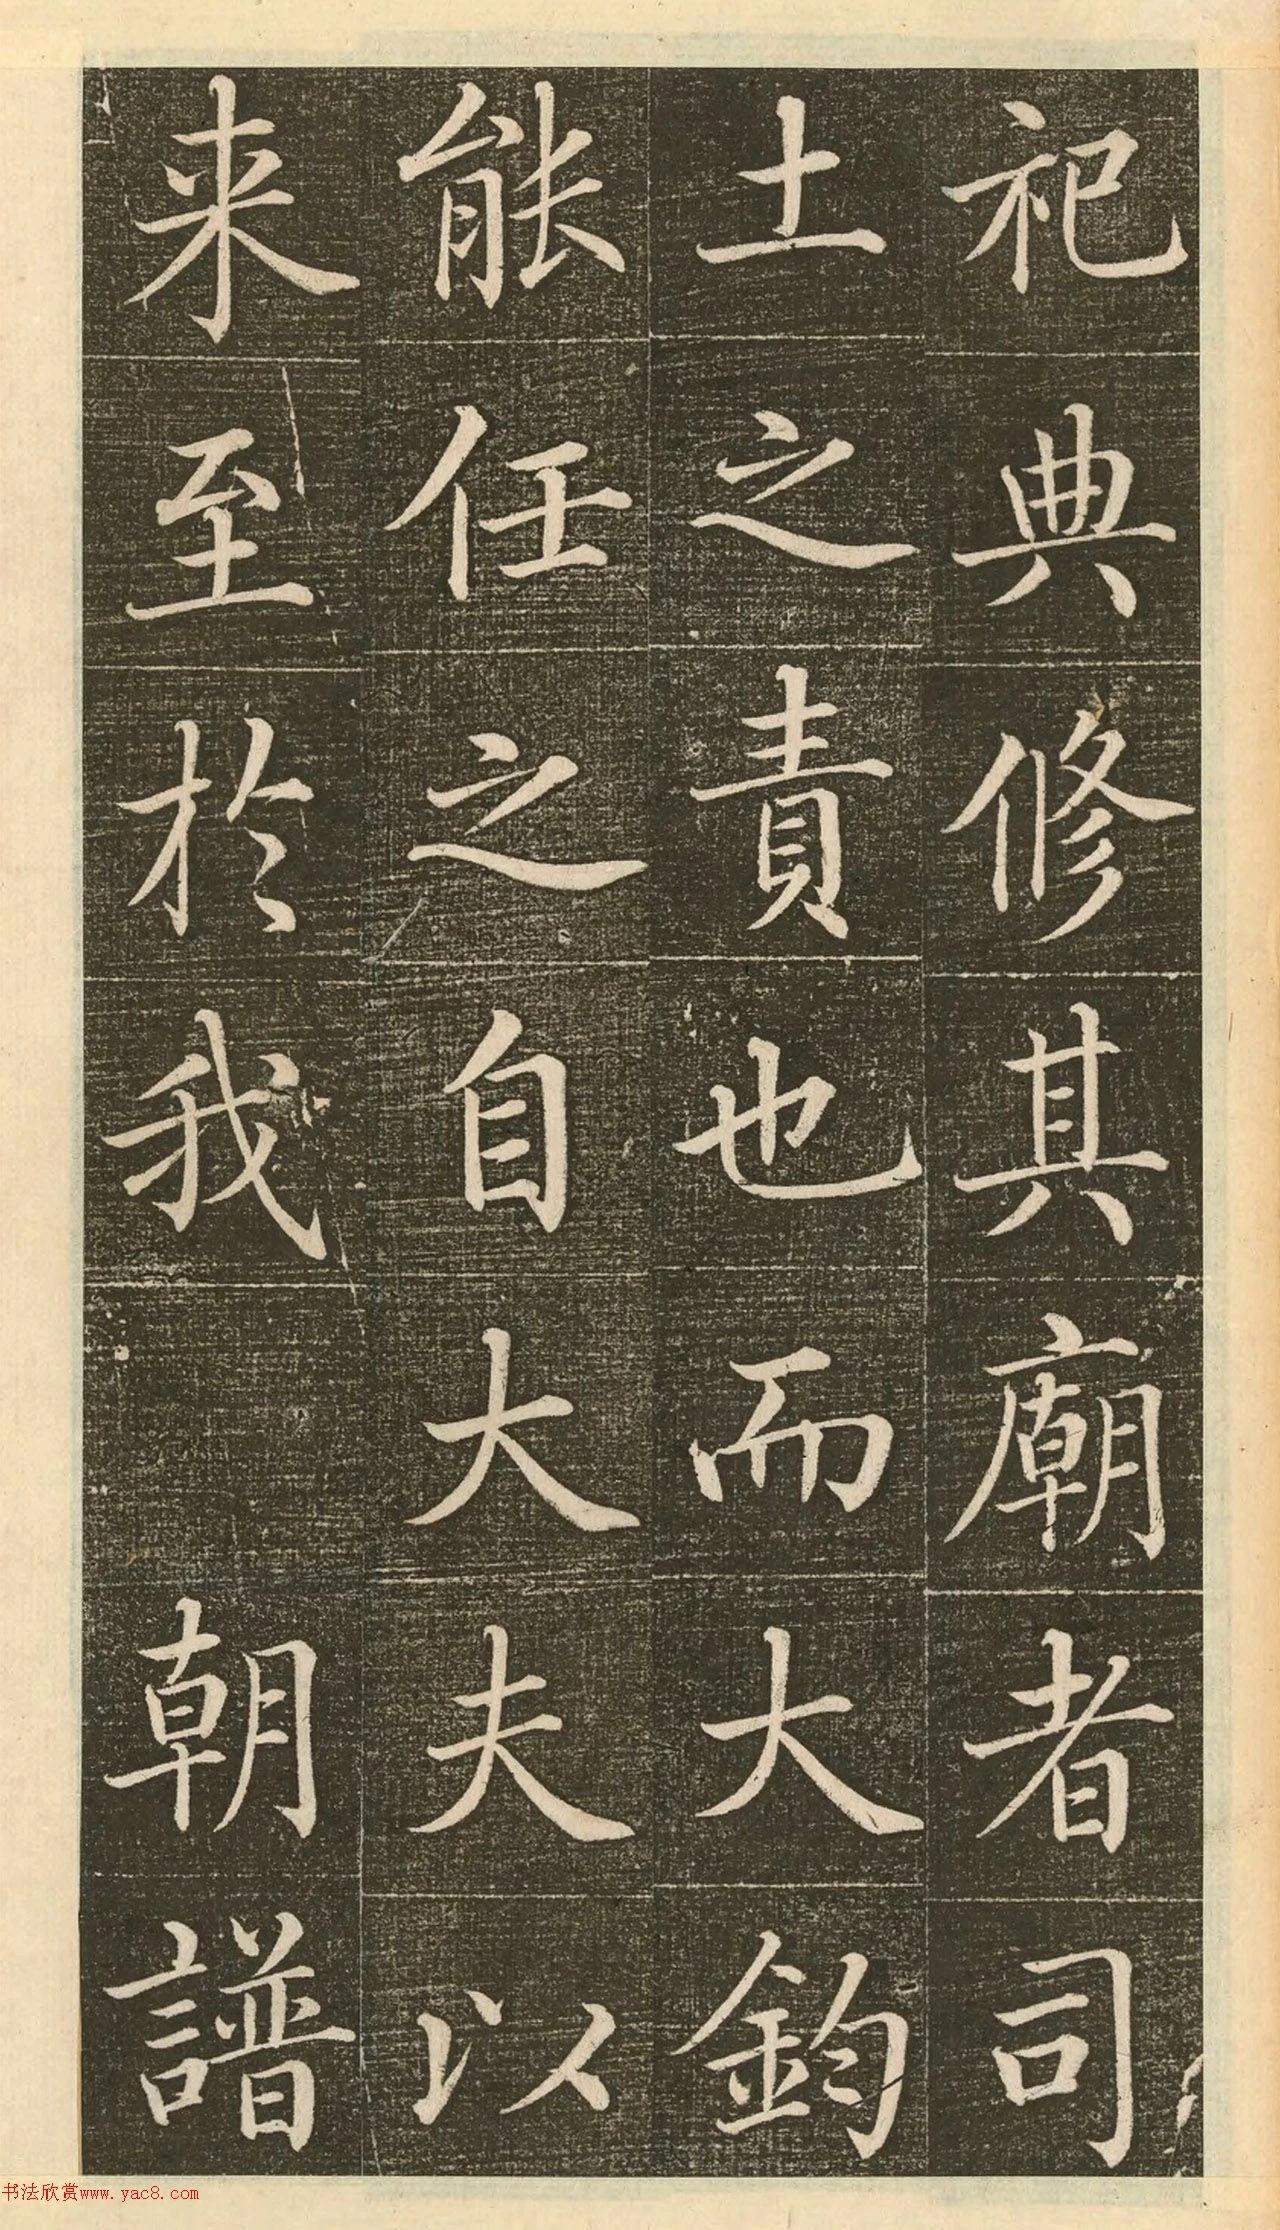 祀典修其廟者司
土之責也而大鈞
能任之自大夫以
来至於我朝譜
书法欣赏www.yac8.com